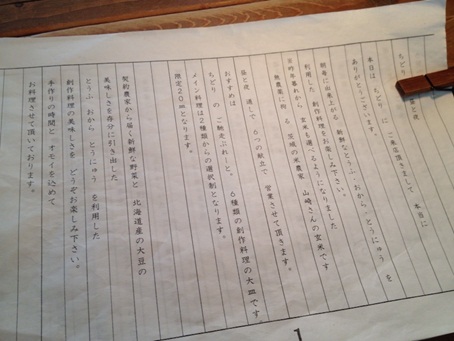 ちどり　　昼と夜
本日は　ちどり　に　ご来店頂きまして　本当に
ありがとうございます。
朝毎に出来上がる　新鮮なとうふ　おから　とうにゅう　を
利用した　創作料理をお楽しみ下さい。
去年の暮れから　玄米を選べるようになりました
無農薬に拘る　茨城の米農家　山崎さんの玄米です
昼と夜　通して　6つの献立で　営業させて頂きます。
おすすめは
ちどり　の　ご馳走ぷれーと、　6種類の創作料理の大皿です
メイン料理は2種類からの選択制となります。
限定20皿となります。
契約農家から届く新鮮な野菜と　北海道産の大豆の
美味しさを存分に引き出した、
とうふ　おから　とうにゅう　を利用した
創作料理の美味しさを　どうぞお楽しみ下さい。
手作りの時間と　オモイを込めて
お料理させて頂いております。
1